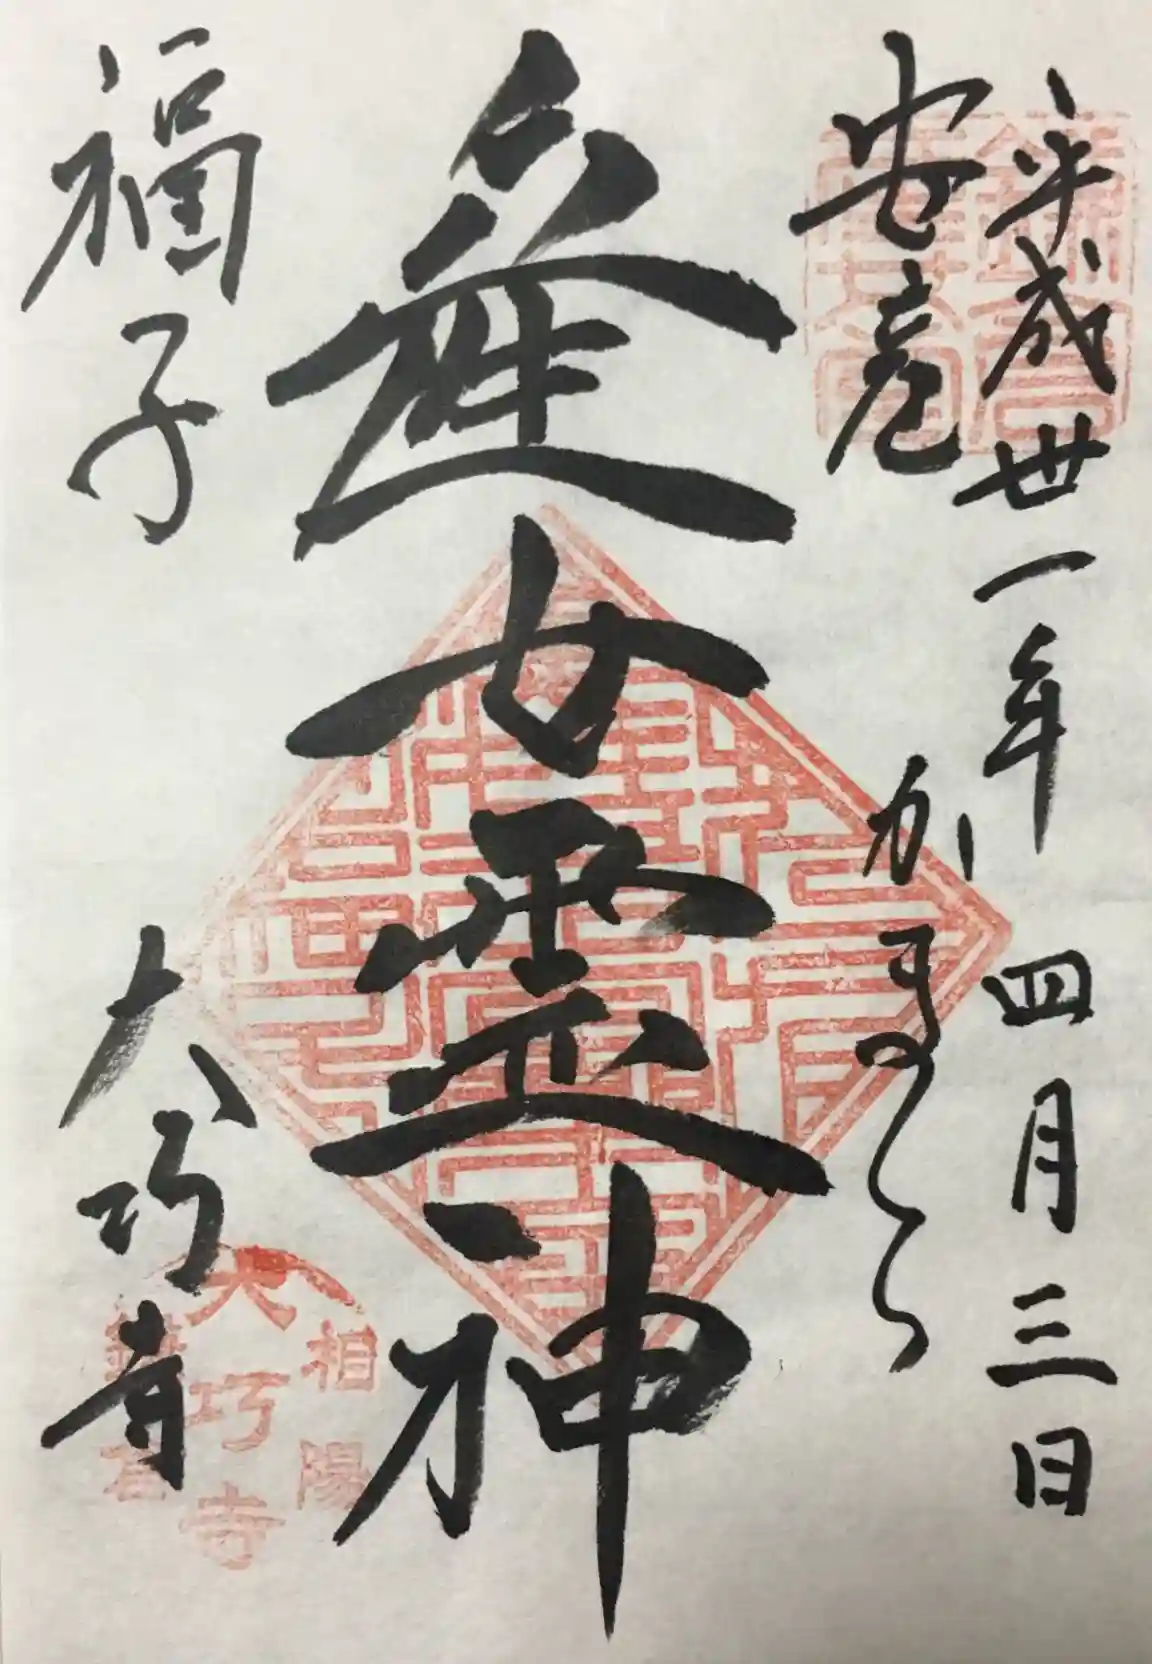 平成丗一年四月三日
安産
かまくら
産女霊神
福子
大巧寺
相陽
鎌倉
大巧寺